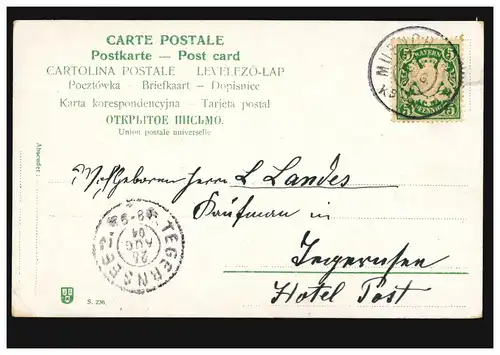 CARTE POSTALE
Postkarte — Post card
CARTOLINA POSTALE LEVELEZÖ-LAP
Pocztówka — Briefkaart — Dopisnice
Karta korespondencyjna — Tarjeta postal
ОТКРЫТОЕ ПИСЬМО.
Union postale universelle
BAYERN
5 5
PFENNIG
Absender:
Herrn L. Landes
Kaufman in
Tegernsee
Hotel Post
TEGERNSEE
8-9
26
AUG
04
S. 236.